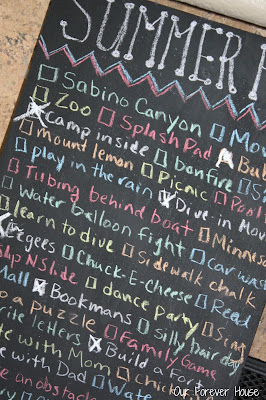 SUMMER
Sabino Canyon
Zoo Splash Pad Mov
Camp inside Bab
Mount lemon bonfire Si
play in the rain Picnic Dive-in Mov
Tubing behind boat Pool
Water balloon fight Minneso
learn to dive Sidewalk chalk Car was
Eegees Chuck-E-Cheese Read
Slip N Slide dance Party Sing
Mall Bookmans silly hair day
a puzzle Family Game
letters Build a Fort
with Mom chick
with Dad Water
an obstac
Our Forever House